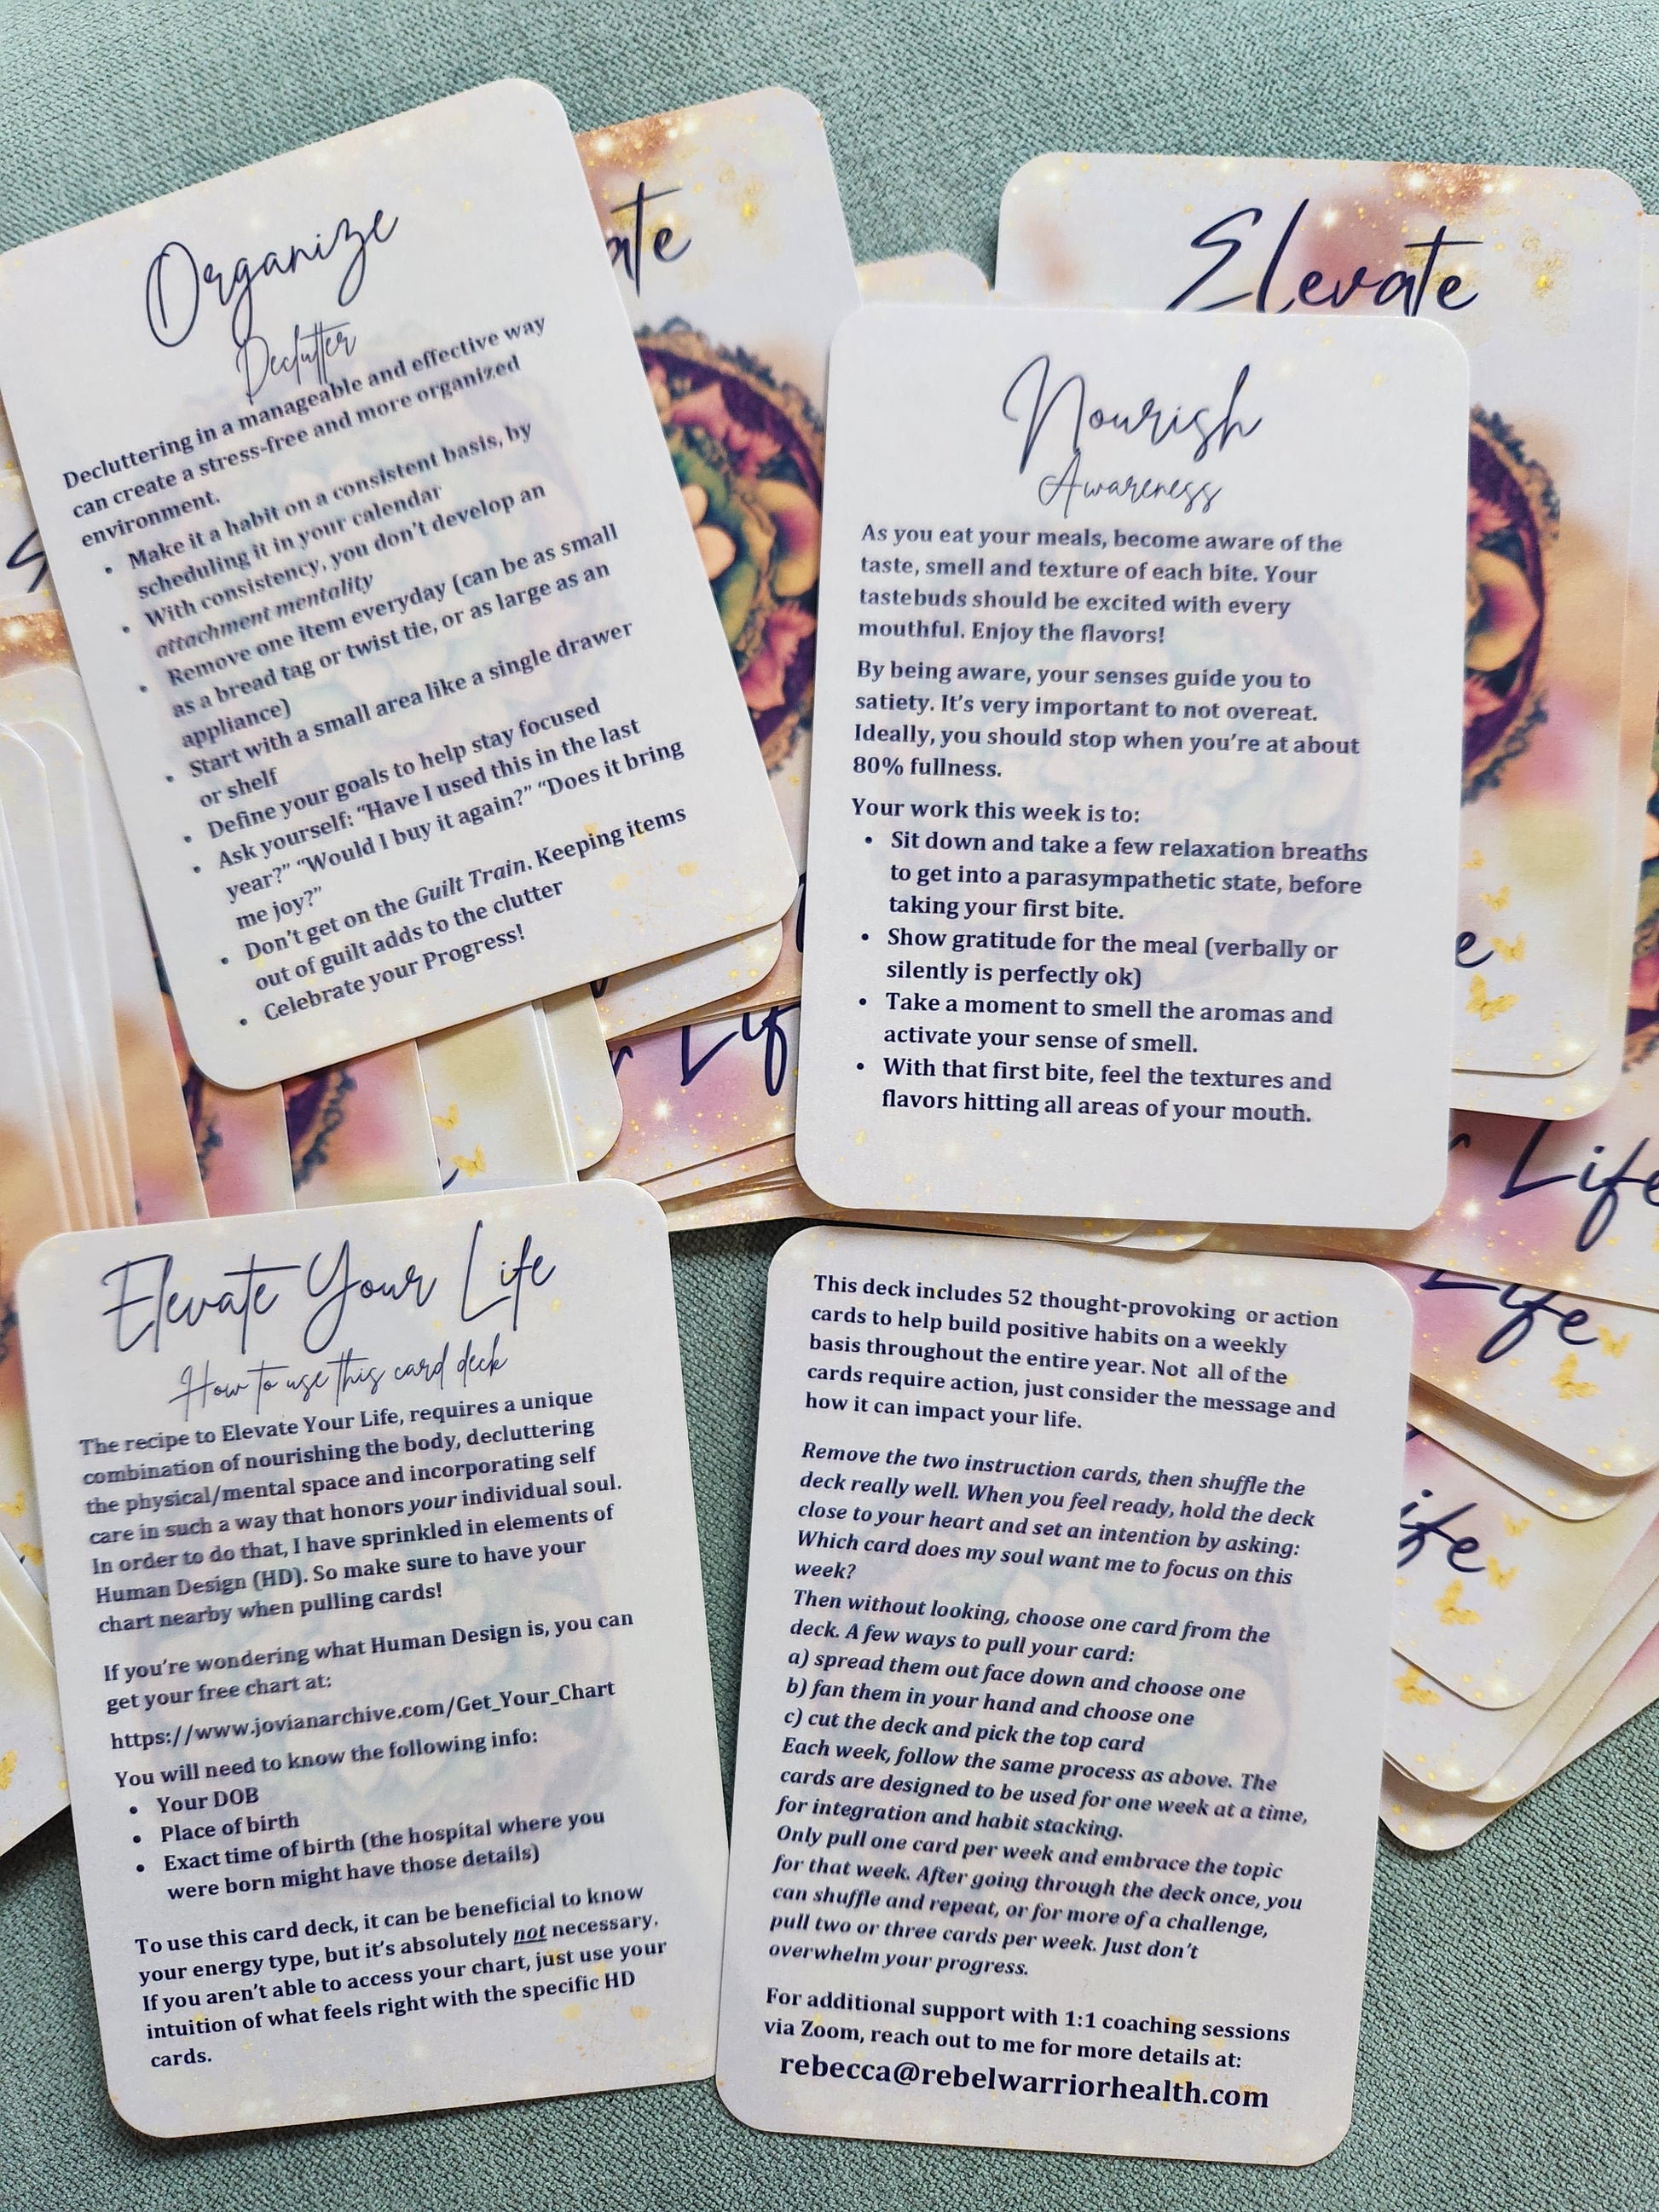 Organize
Declutter
Decluttering in a manageable and effective way
can create a stress-free and more organized
environment.
• Make it a habit on a consistent basis, by
scheduling it in your calendar
• With consistency, you don't develop an
attachment mentality
• Remove one item everyday (can be as small
as a bread tag or twist tie, or as large as an
appliance)
• Start with a small area like a single drawer
or shelf
• Define your goals to help stay focused
• Ask yourself: "Have I used this in the last
year?" "Would I buy it again?" "Does it bring
me joy?"
• Don't get on the Guilt Train. Keeping items
out of guilt adds to the clutter
• Celebrate your Progress!
ate
Elevate
Nourish
Awareness
As you eat your meals, become aware of the
taste, smell and texture of each bite. Your
tastebuds should be excited with every
mouthful. Enjoy the flavors!
By being aware, your senses guide you to
satiety. It's very important to not overeat.
Ideally, you should stop when you're at about
80% fullness.
Your work this week is to:
• Sit down and take a few relaxation breaths
to get into a parasympathetic state, before
taking your first bite.
• Show gratitude for the meal (verbally or
silently is perfectly ok)
• Take a moment to smell the aromas and
activate your sense of smell.
• With that first bite, feel the textures and
flavors hitting all areas of your mouth.
e
r Lif
r Life
Life
ife
Elevate Your Life
How to use this card deck
The recipe to Elevate Your Life, requires a unique
combination of nourishing the body, decluttering
the physical/mental space and incorporating self
care in such a way that honors your individual soul.
In order to do that, I have sprinkled in elements of
Human Design (HD). So make sure to have your
chart nearby when pulling cards!
If you're wondering what Human Design is, you can
get your free chart at:
https://www.jovianarchive.com/Get_Your_Chart
You will need to know the following info:
• Your DOB
• Place of birth
• Exact time of birth (the hospital where you
were born might have those details)
To use this card deck, it can be beneficial to know
your energy type, but it's absolutely not necessary.
If you aren't able to access your chart, just use your
intuition of what feels right with the specific HD
cards.
This deck includes 52 thought-provoking or action
cards to help build positive habits on a weekly
basis throughout the entire year. Not all of the
cards require action, just consider the message and
how it can impact your life.
Remove the two instruction cards, then shuffle the
deck really well. When you feel ready, hold the deck
close to your heart and set an intention by asking:
Which card does my soul want me to focus on this
week?
Then without looking, choose one card from the
deck. A few ways to pull your card:
a) spread them out face down and choose one
b) fan them in your hand and choose one
c) cut the deck and pick the top card
Each week, follow the same process as above. The
cards are designed to be used for one week at a time,
for integration and habit stacking.
Only pull one card per week and embrace the topic
for that week. After going through the deck once, you
can shuffle and repeat, or for more of a challenge,
pull two or three cards per week. Just don't
overwhelm your progress.
For additional support with 1:1 coaching sessions
via Zoom, reach out to me for more details at:
rebecca@rebelwarriorhealth.com